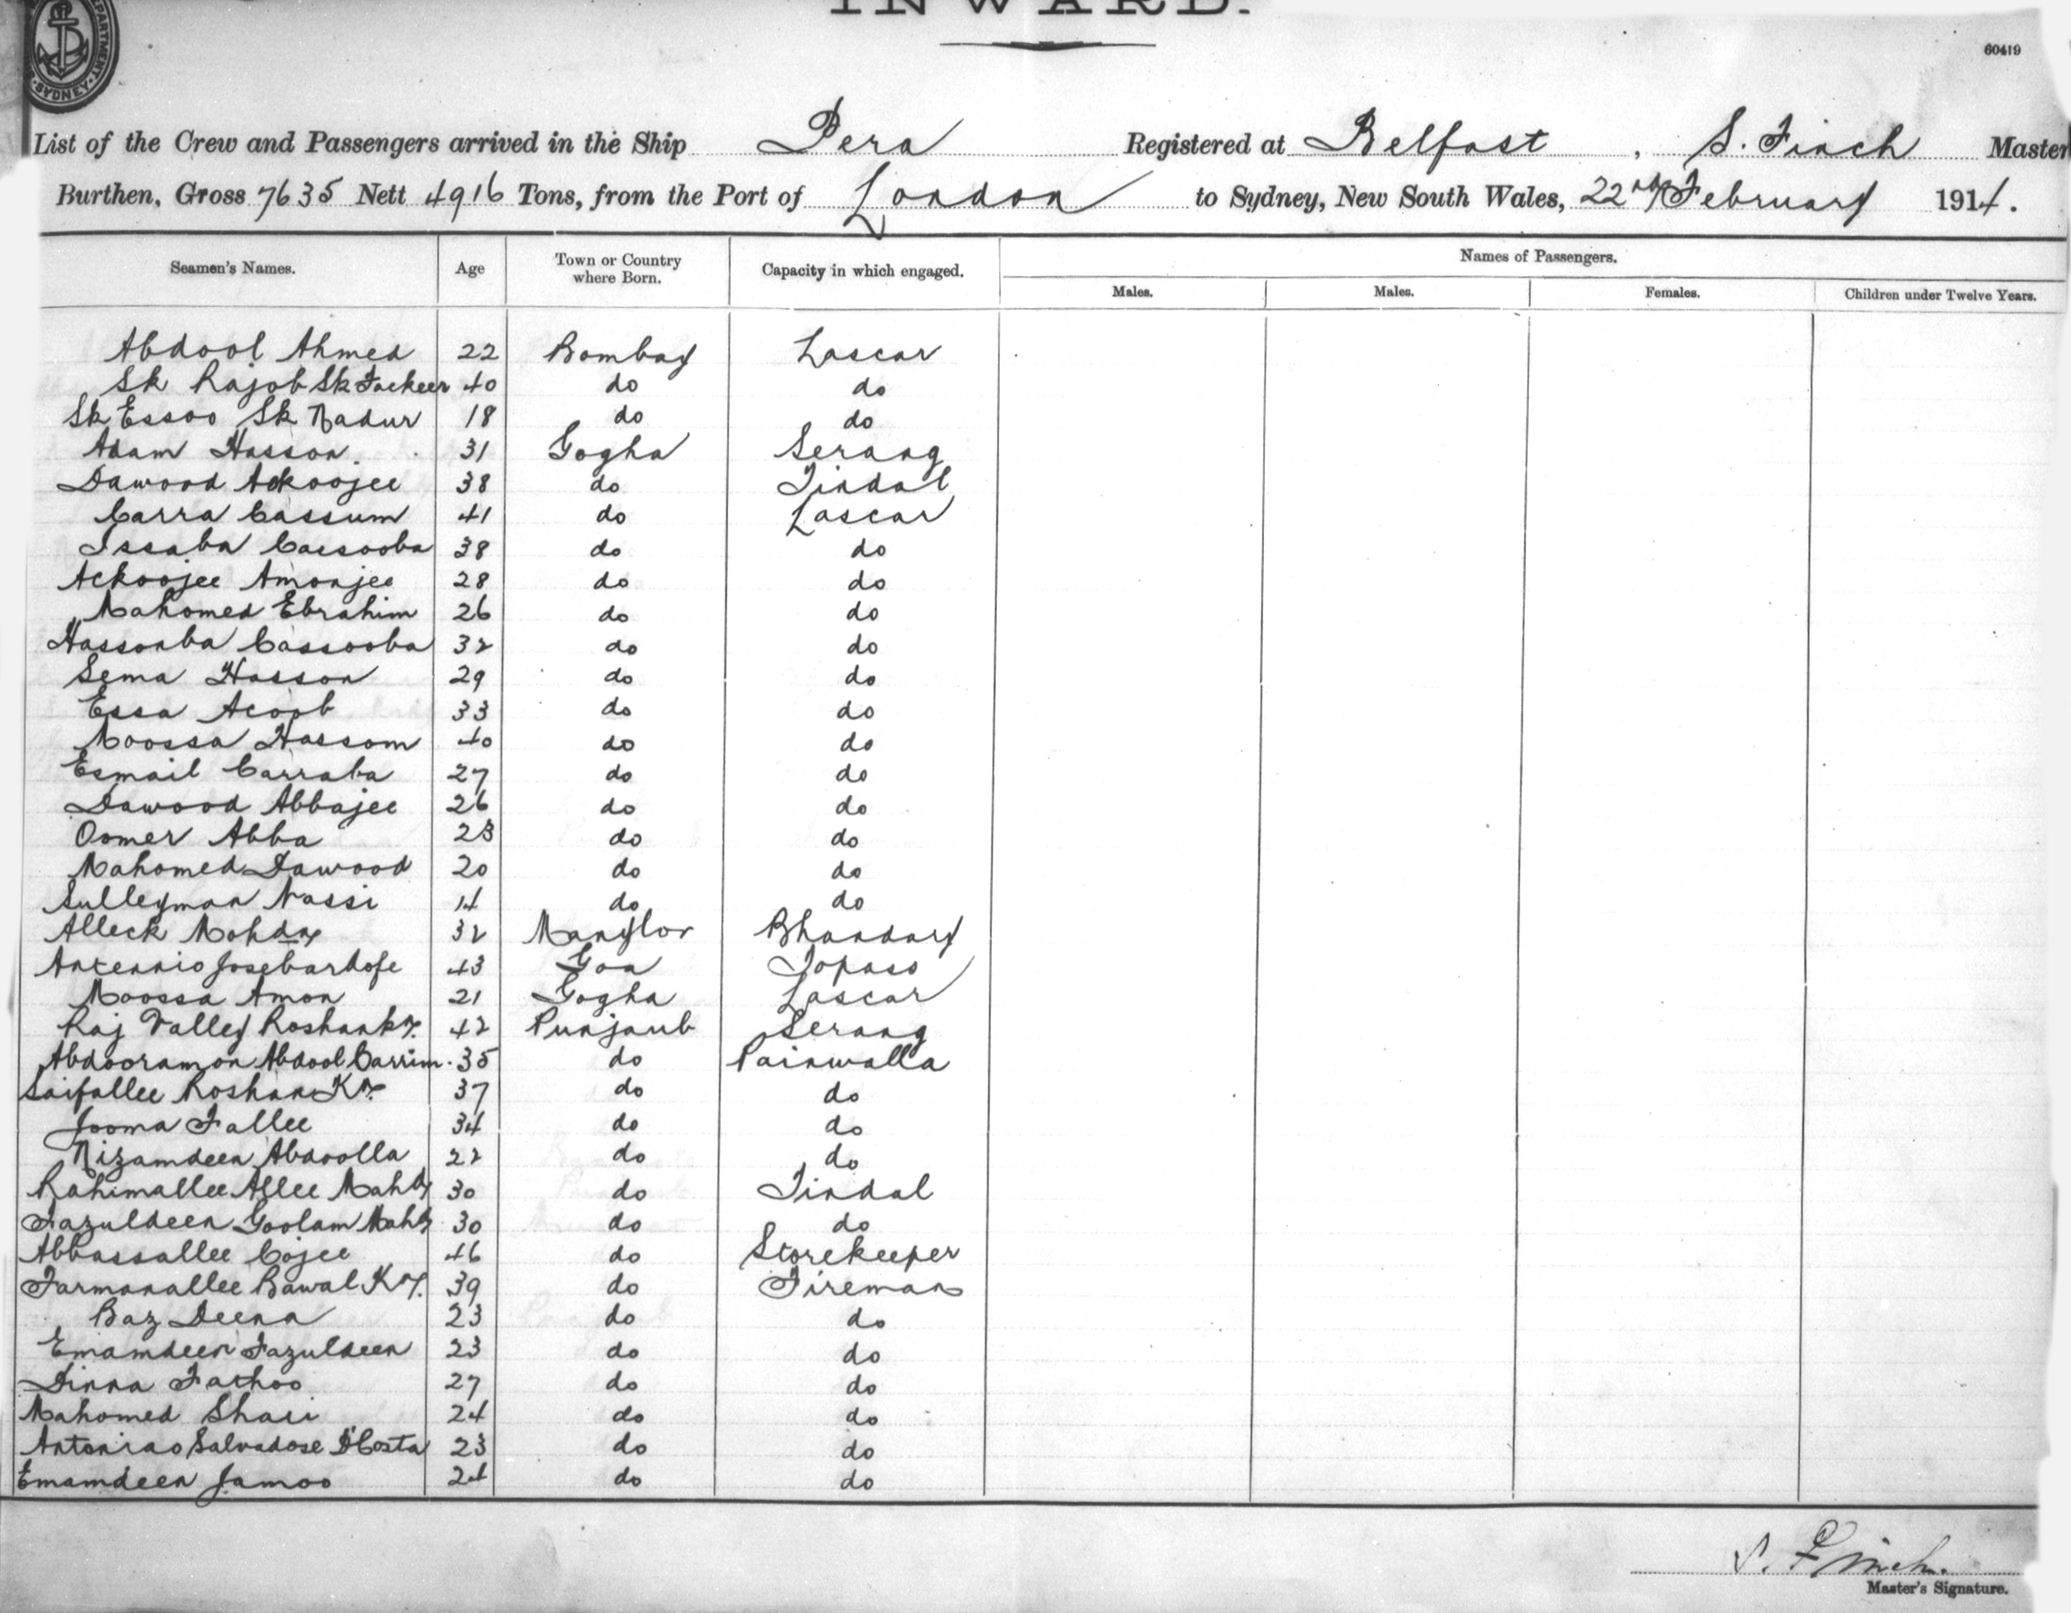 INWARD.
DEPARTMENT. SYDNEY
60419
List of the Crew and Passengers arrived in the Ship Pera Registered at Belfast, S. Finch Master
Burthen, Gross 7635 Nett 4916 Tons, from the Port of London to Sydney, New South Wales, 22nd February 1914.
Seamen's Names. Age Town or Country where Born. Capacity in which engaged. Names of Passengers.
Males. Males. Females. Children under Twelve Years.
Abdool Ahmed 22 Bombay Lascar
Sk Rajob Sk Fackeer 40 do do
Sk Essoo Sk Nadur 18 do do
Adam Hasson. 31 Gogha Serang
Dawood Ackoojee 38 do Tindal
Carra Cassum 41 do Lascar
Issaba Cassooba 38 do do
Ackoojee Amonjee 28 do do
Mahomed Ebrahim 26 do do
Hassonba Cassooba 32 do do
Sema Hasson 29 do do
Essa Acoob 33 do do
Moossa Hassom 40 do do
Esmail Carraba 27 do do
Dawood Abbajee 26 do do
Oomer Abba 23 do do
Mahomed Dawood 20 do do
Sulleyman Nassi 14 do do
Alleck Mohdx 32 Manglor Bhandary
Antennio Josebardofe 43 Goa Topass
Moossa Amon 21 Gogha Lascar
Raj Valley Roshankn. 42 Punjaub Serang
Abdooramon Abdool Carrim. 35 do Painwalla
Saifallee Roshan Kn. 37 do do
Jooma Fallee 34 do do
Nizamdeen Abdoolla 22 do do
Rahimallee Allee Mahd 30 do Tindal
Fazuldeen Goolam Mahd 30 do do
Abbassallee Cojee 46 do Storekeeper
Farmanallee Bawal Kn. 39 do Fireman
Baz Deena 23 do do
Emamdeen Fazuldeen 23 do do
Dinna Fathoo 27 do do
Mahomed Shasi 24 do do
Antoniao Salvadose D'Costa 23 do do
Emamdeen Jamoo 24 do do
S. Finch.
Master's Signature.